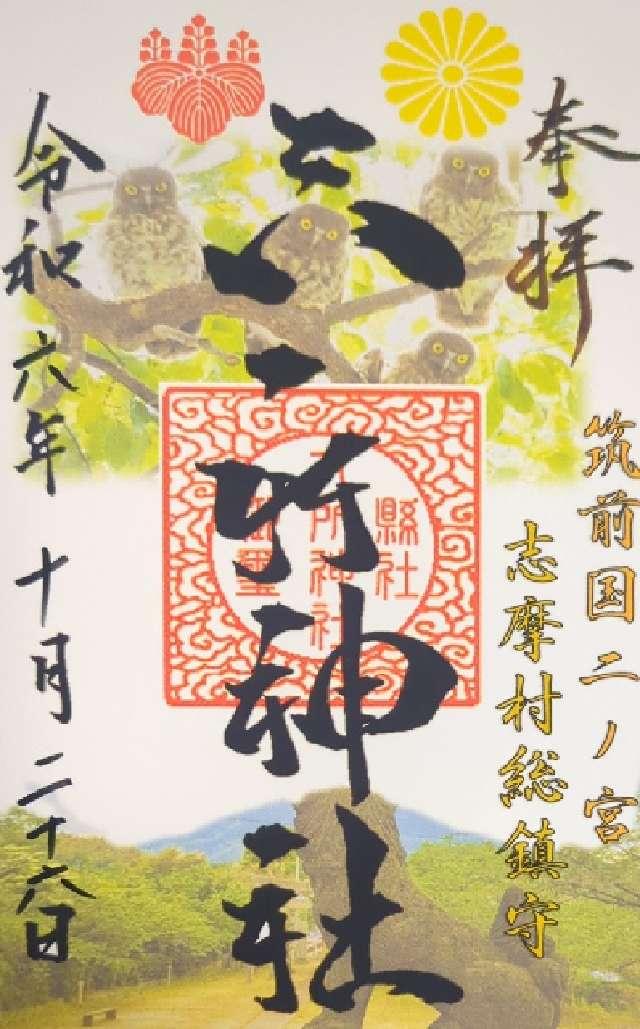 奉拝
筑前国二ノ宮
志摩村総鎮守
六所神社
縣社
六所神社
御璽
令和六年十月二十六日